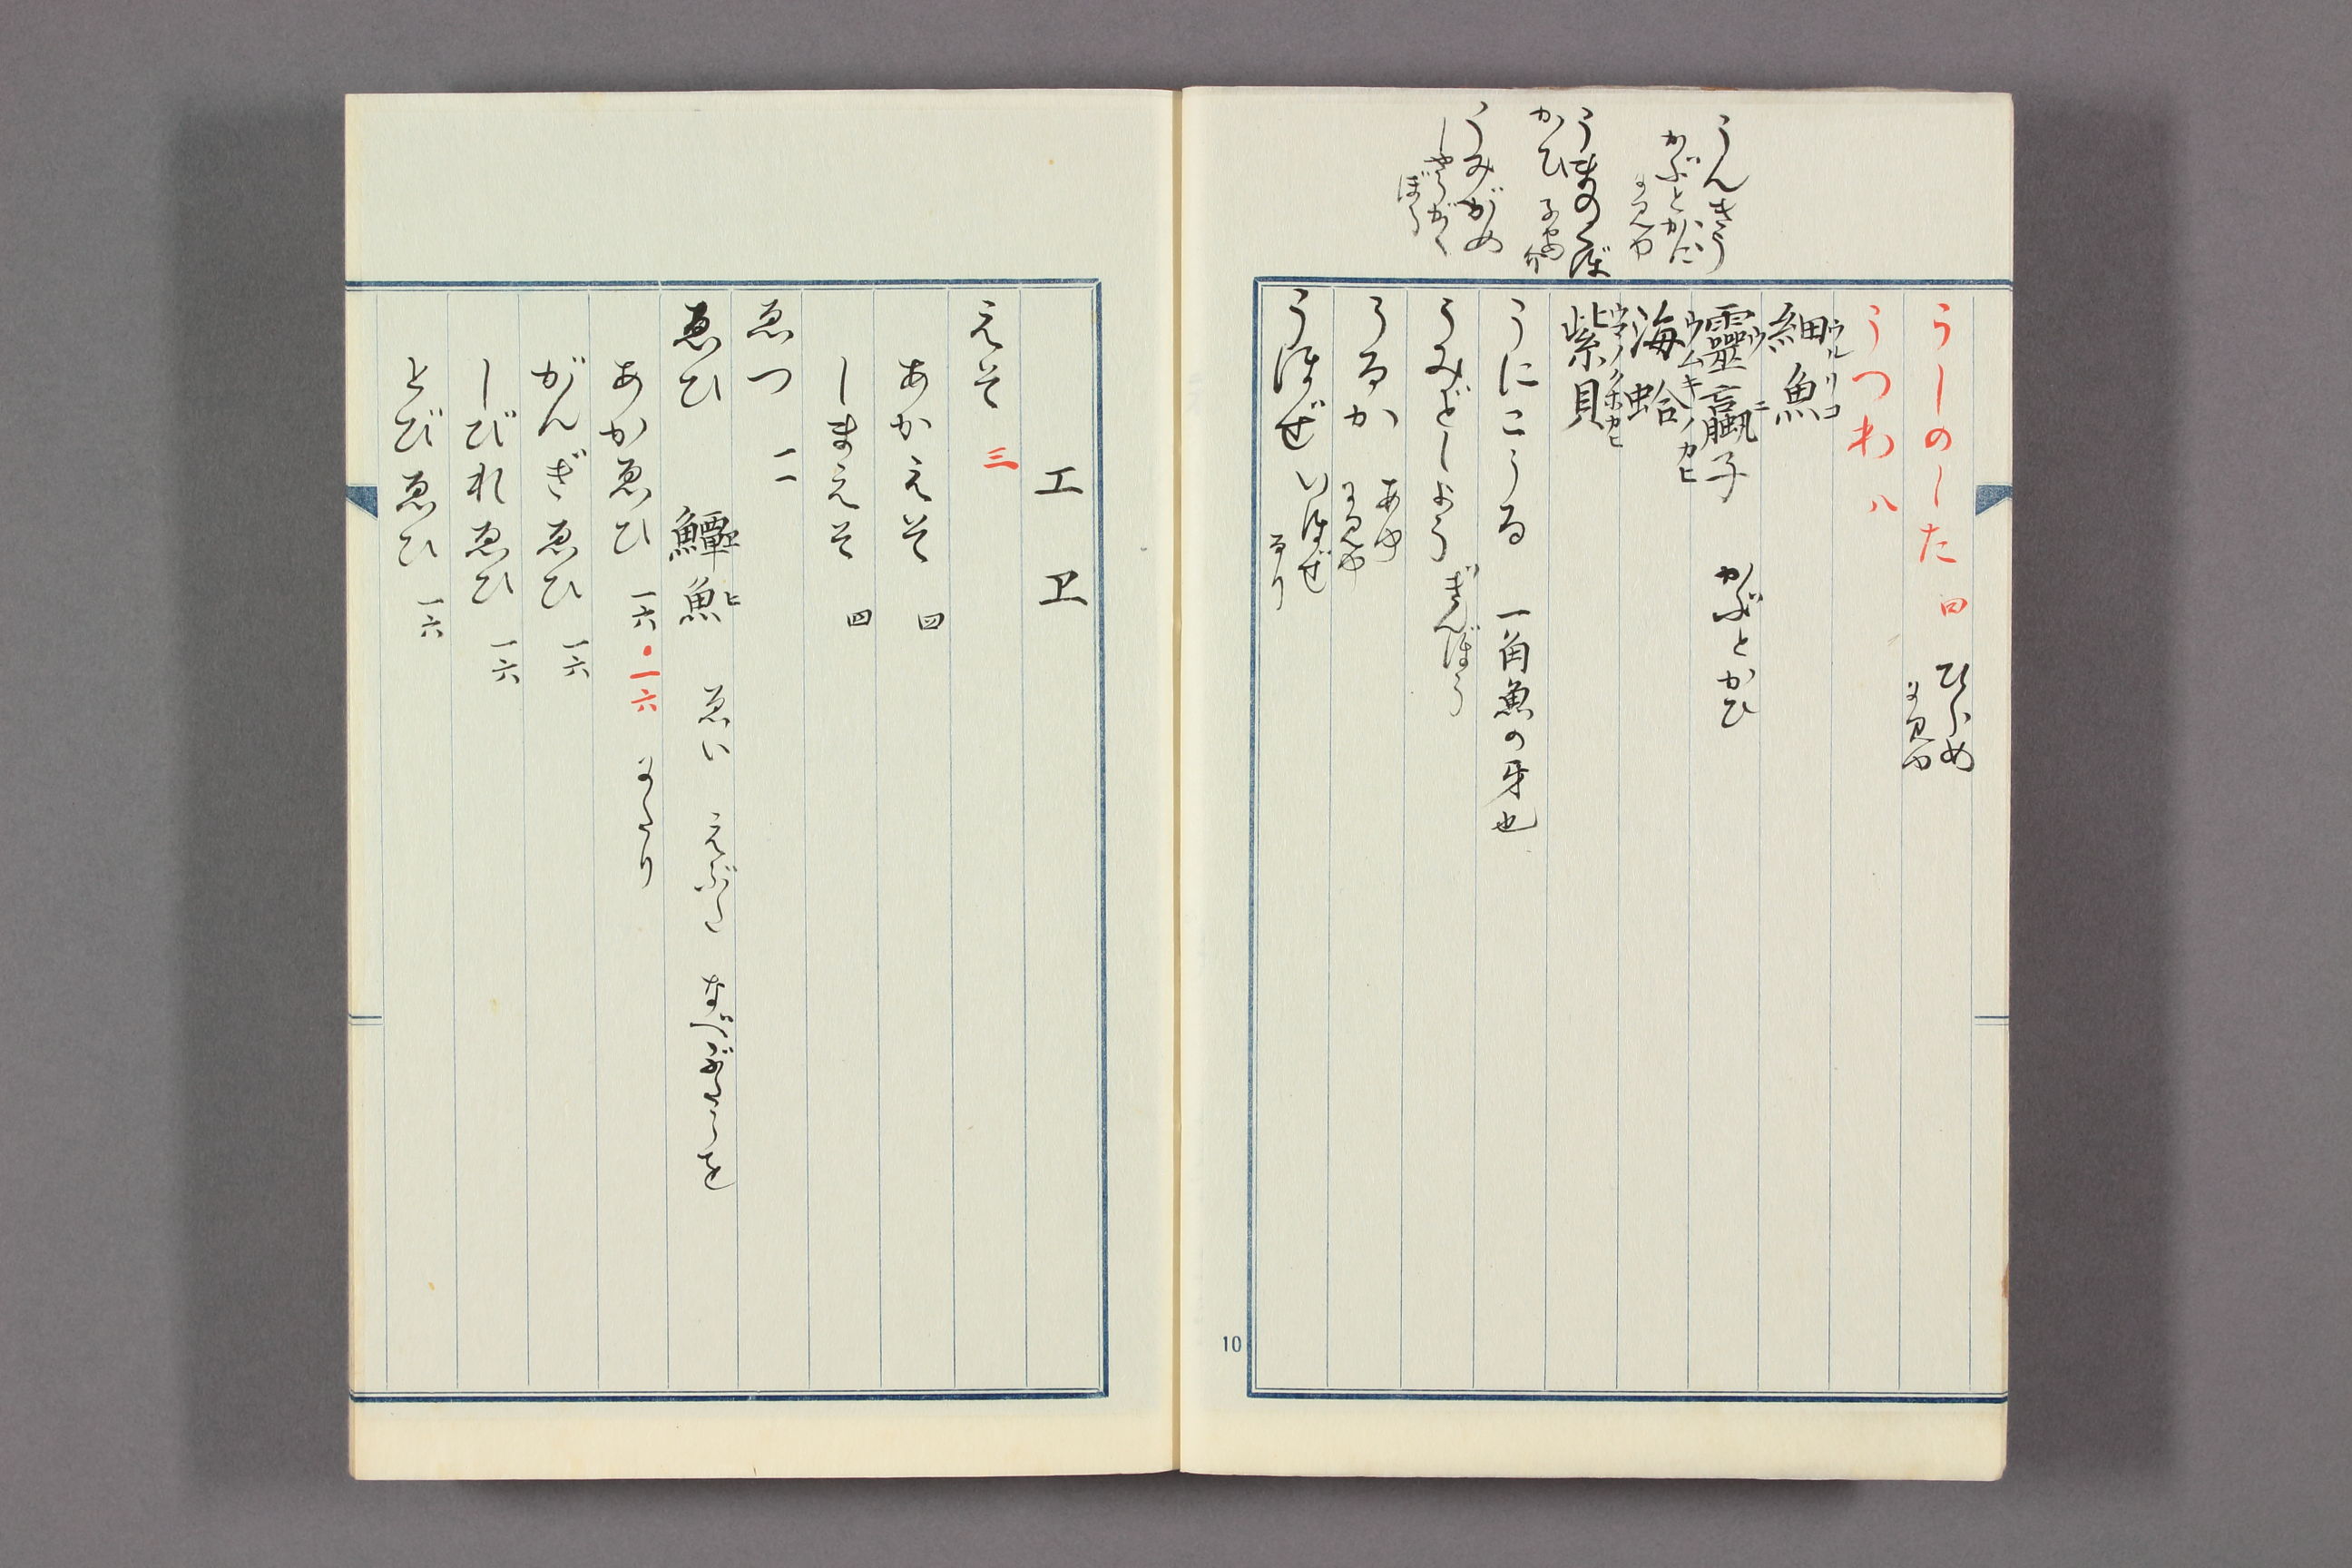 うんきう
かぶとがに
うまのくぼ
かひ
うみがめ
しやうがく
ぼう
うしのした 四 ひらめ
うつわ 八
細魚 ウルリコ
靈蠃子 かぶとかひ
海蛤 ウムキノカヒ
紫貝 ウマノクボカヒ
うにこうる 一角魚の牙也
うみどしよう ぎんぼう
うるか あゆ
うぼぜ いぼぜ
なり
10
エ ヱ
えそ 三
あかえそ 四
しまえそ 四
ゑつ 二
ゑひ 鱏魚 ゑい えぶた
あかゑひ 一六・一六
がんぎゑひ 一六
しびれゑひ 一六
とびゑひ 一六